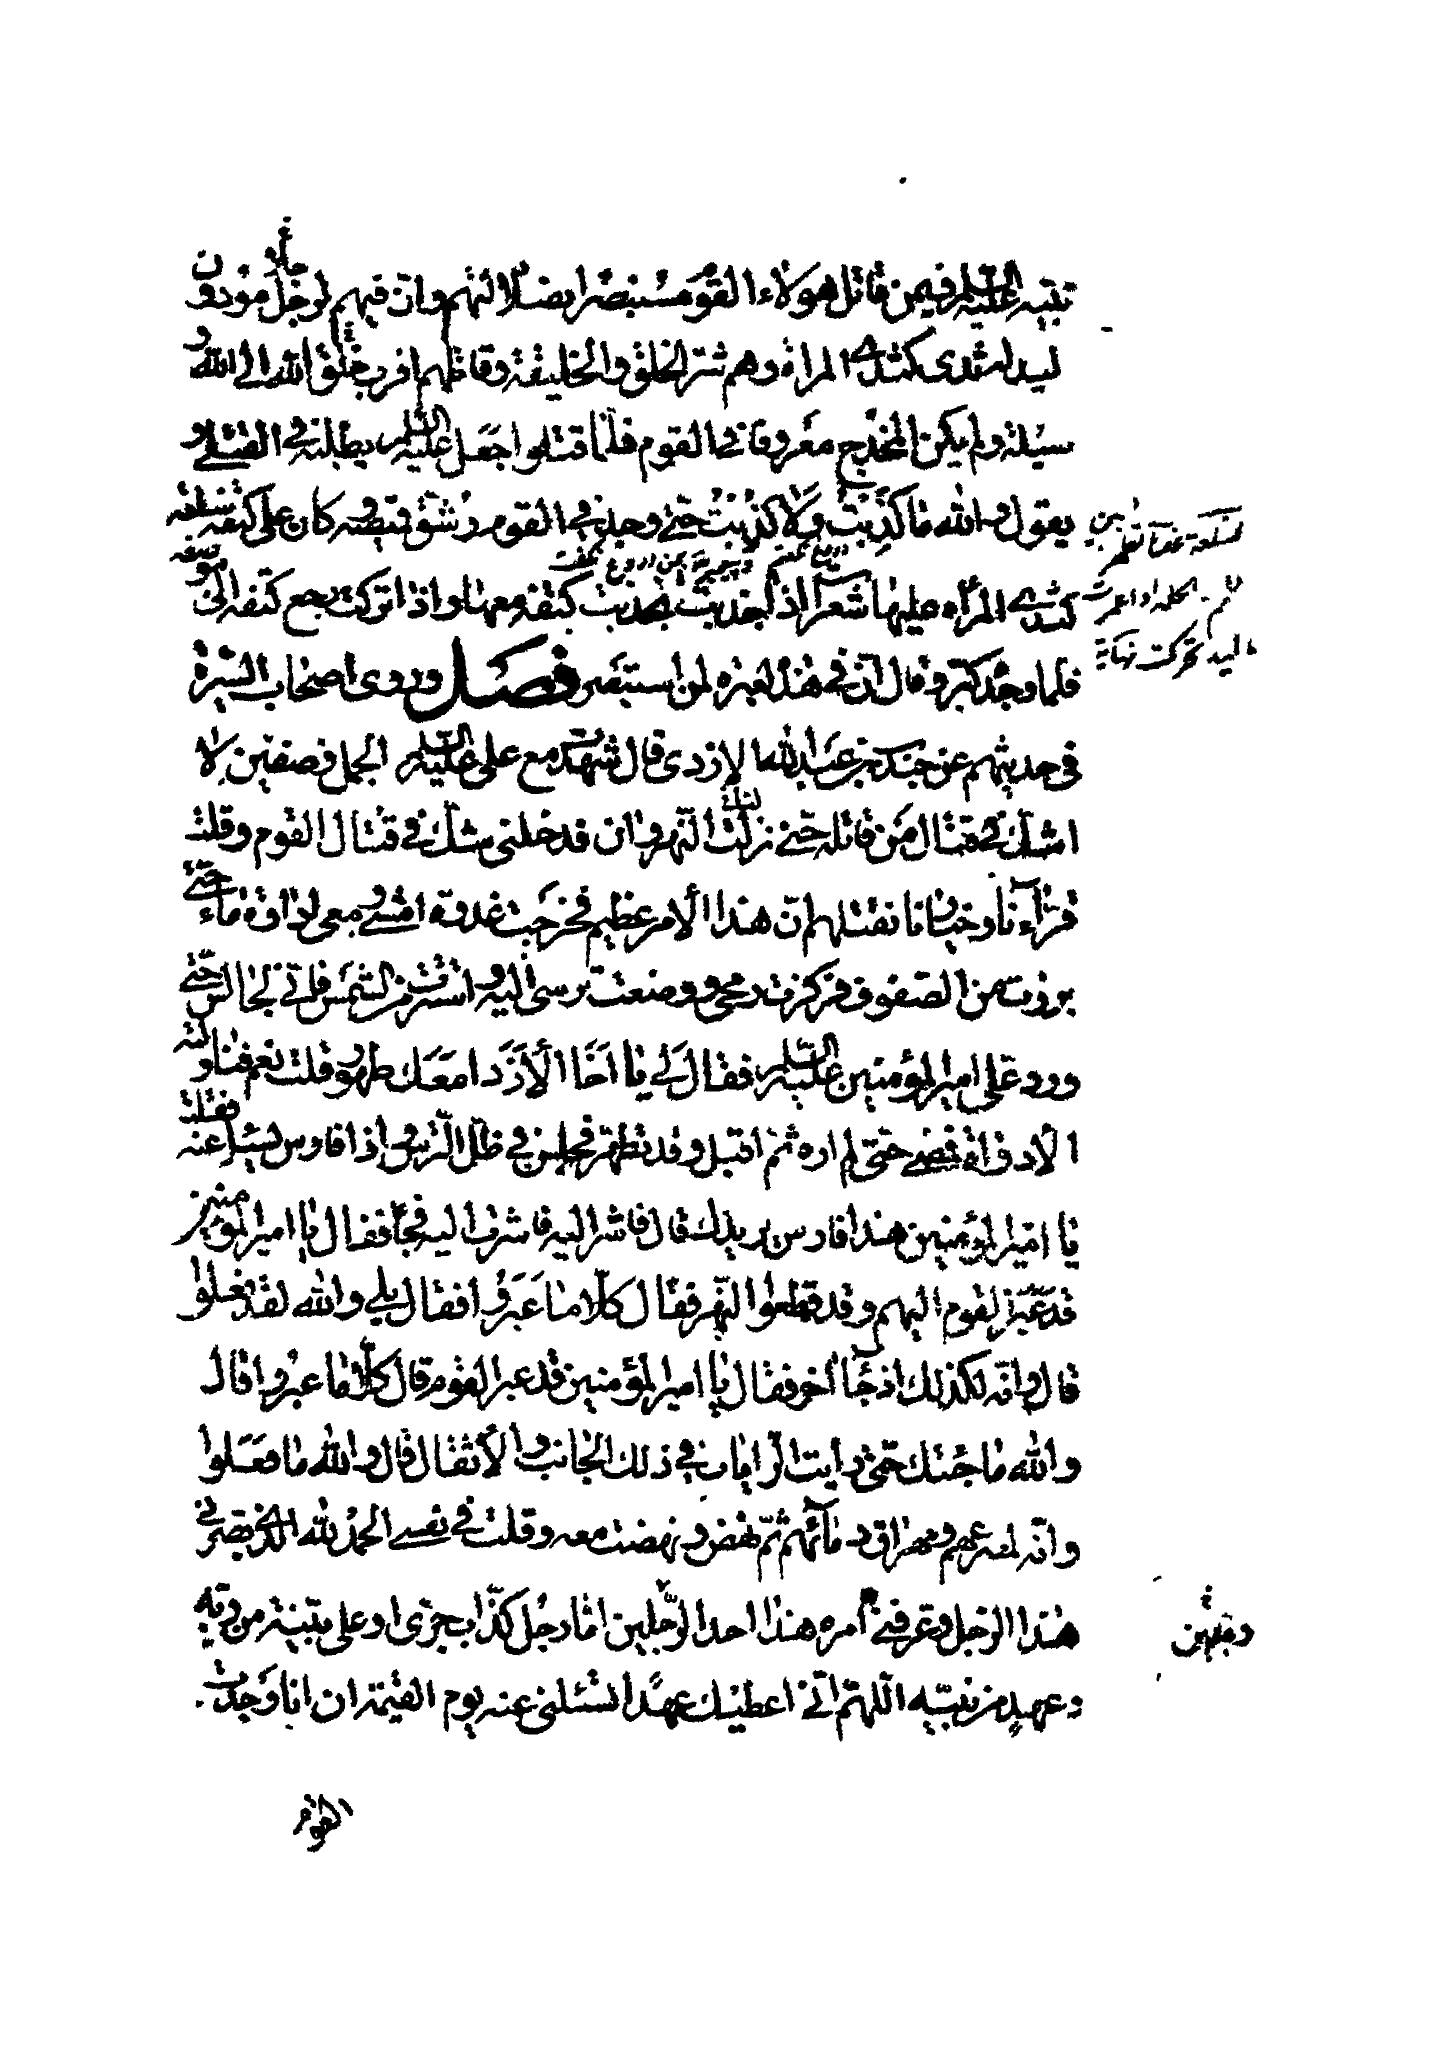 نبيّه عليه السلم فيمن قاتل هؤلاء القوم مستبصرا بضلالتهم وانّ فيهم لرجلا مؤذون
اليد له ثدى كثدى المرأة وهم شرّ الخلق والخليقة وقاتلهم اقرب خلق الله الى الله و
سيلة ولم يكن المخدج معروفا فى القوم فلمّا قتلوا جعل عليه السلم يطلبه فى القتلى و
يقول والله ما كذبت ولا كذّبت حتّى وجد فى القوم و شقّ قميصه وكان على كتفه سلعة
كثدى المرأة عليها شعرات اذا جذبت انجذبت كتفه معها واذا تركت رجع كتفه الى موضعه
فلمّا وجد كبّر وقال انّ فى هذا لعبرة لمن استبصر فصل وروى اصحاب السّيرة
فى حديثهم عن جندب بن عبد الله الازدى قال شهدت مع على عليه السلم الجمل وصفّين لا
اشكّ فى قتال من قاتله حتّى نزلت النّهروان فدخلنى شكّ فى قتال القوم وقلت
قرّاءنا وخيارنا نقتلهم انّ هذا الامر عظيم فخرجت غدوة امشى ومعى اداوة ماء حتّى
برزت من الصفوف فركزت رمحى ووضعت ترسى اليه واستترت من الشمس فانّى لجالس حتّى
ورد علىّ امير المؤمنين عليه السلم فقال لى يا اخا الازد امعك طهور قلت نعم فناولته
الاداوة فمضى حتّى لم اره ثمّ اقبل وقد تطهّر فجلس فى ظلّ التّرس واذا فارس يسئل عنه فقلت
يا امير المؤمنين هذا فارس يريدك قال فاشر اليه فاشرت اليه فجاء فقال يا امير المؤمنين
قد عبّر القوم اليهم وقد قطعوا النّهر فقال كلّا ما عبروا فقال بلى والله لقد فعلوا
قال وانّه لكذلك اذ جاء آخر فقال يا امير المؤمنين قد عبر القوم قال كلّا ما عبروا قال
والله ما جئتك حتّى رأيت الرّايات فى ذلك الجانب والاثقال قال والله ما فعلوا
وانّه لمصرعهم ومهراق دمائهم ثمّ نهض ونهضت معه وقلت فى نفسى الحمد لله الذى بصّرنى
هذا الرجل وعرّفنى امره هذا احد الرّجلين امّا رجل كذّاب جرىّ او على بيّنة من ربّه
وعهد من نبيّه اللهمّ انّى اعطيك عهدا تسئلنى عنه يوم القيمة ان انا وجدت
القوم